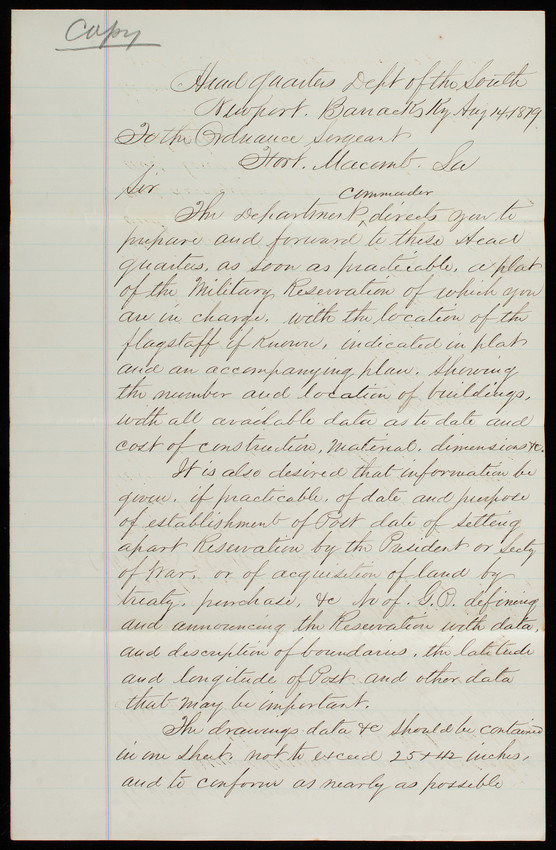 Copy
Head quarters Dept of the South
Newport. Barracks Ky Aug 14. 1879
To the Ordnance Sergeant
Fort. Macomb. La
Sir
commander
The Department ^ directs you to
prepare and forward to these Head
quarters, as soon as practicable, a plat
of the Military Reservation of which you
are in charge, with the location of the
flagstaff if Known, indicated in plat
and an accompanying plan, showing
the number and location of buildings,
with all available data as to date and
cost of construction, material, dimensions &c.
It is also desired that information be
given, if practicable, of date and purpose
of establishment of Post date of setting
apart Reservation by the President or Secty
of War, or of acquisition of land by
treaty, purchase, &c No of. G.O. defining
and announcing the Reservation with data,
and description of boundaries, the latitude
and longitude of Post and other data
that may be important.
The drawings data &c should be contained
in one sheet, not to exceed 25 x 42 inches,
and to conform as nearly as possible